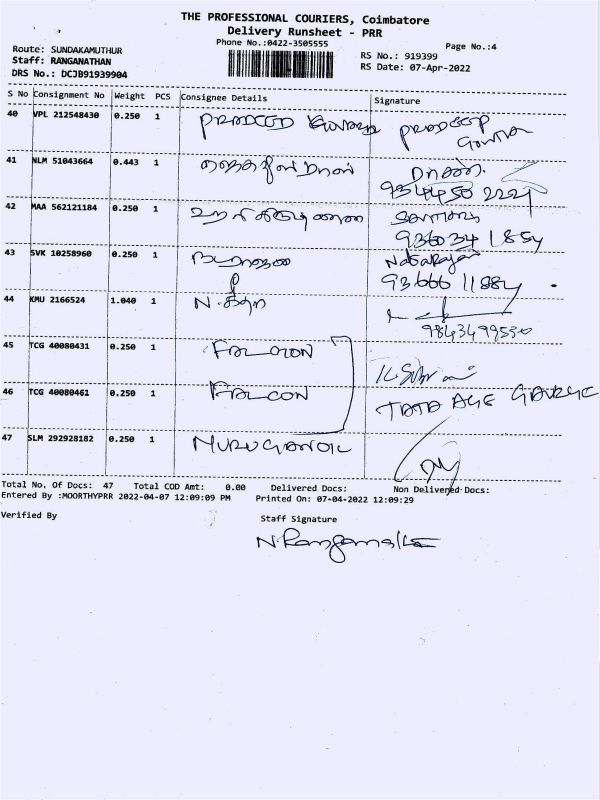 THE PROFESSIONAL COURIERS, Coimbatore
Delivery Runsheet - PRR
Phone No.:0422-3505555
Page No.:4
Route: SUNDAKAMUTHUR
Staff: RANGANATHAN
DRS No.: DCJB91939904
RS No.: 919399
RS Date: 07-Apr-2022
S No Consignment No Weight PCS Consignee Details Signature
40 VPL 212548430 0.250 1 PRADEEP
41 NLM 51043664 0.443 1
42 MAA 562121184 0.250 1 ஹரிகிருஷ்ணன்
936034 1854
43 SVK 10258960 0.250 1 நடராஜன் Natarajan
93666 11884
44 KMU 2166524 1.040 1 N. கீதா
9843499530
45 TCG 40080431 0.250 1 FALCON
46 TCG 40080461 0.250 1 FALCON
TATA ACE
47 SLM 292928182 0.250 1 MURUGAN OIL
Total No. Of Docs: 47 Total COD Amt: 0.00 Delivered Docs: Non Delivered Docs:
Entered By :MOORTHYPRR 2022-04-07 12:09:09 PM Printed On: 07-04-2022 12:09:29
Verified By Staff Signature